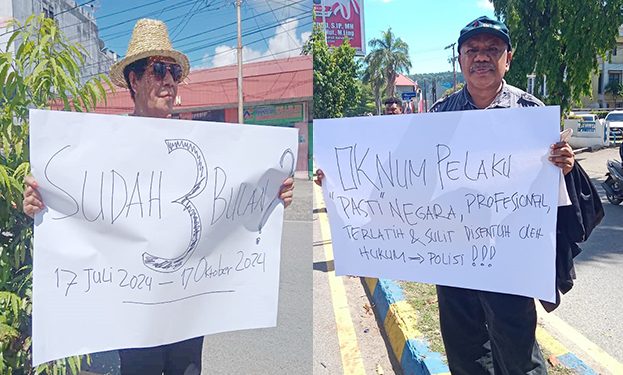 SUDAH 3 BULAN?
17 JULI 2024 — 17 OKTOBER 2024
S.IP, MH
Hut, M.Ling
OKNUM PELAKU
"PASTI" NEGARA, PROFESIONAL,
TERLATIH & SULIT DISENTUH OLEH
HUKUM → POLISI !!!